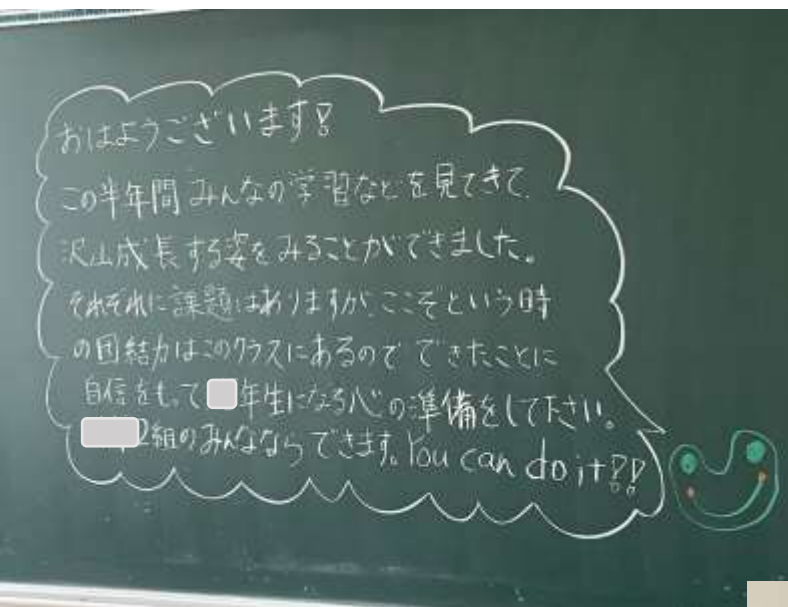 おはようございます!
この半年間みんなの学習などを見てきて、
沢山成長する姿をみることができました。
それぞれに課題はありますが、ここぞという時
の団結力はこのクラスにあるので できたことに
自信をもって 年生になる心の準備をして下さい。
2組のみんなならできます。You can do it!!